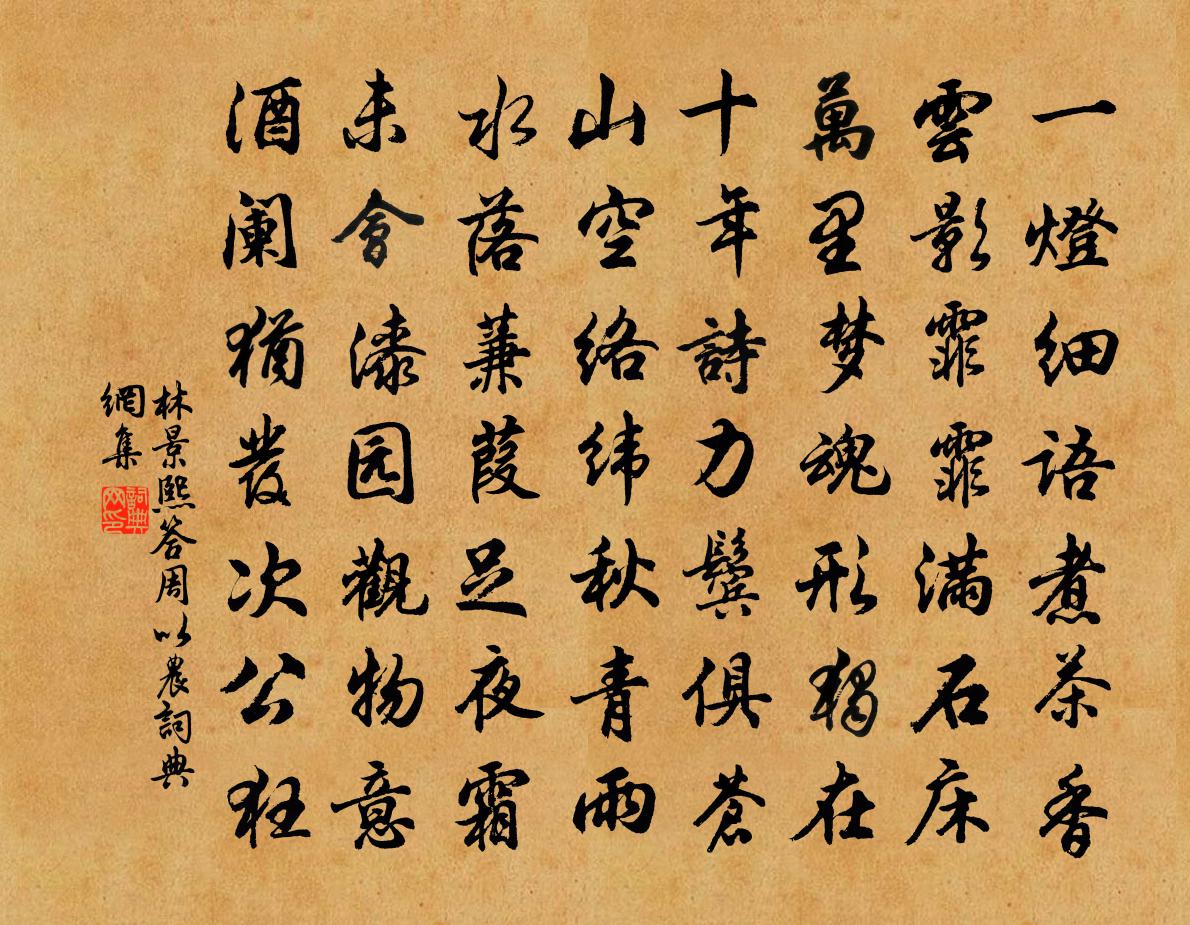 一燈细語煮茶香
雲影霏霏满石床
萬里梦魂形獨在
十年詩力鬢俱蒼
山空络纬秋青雨
水落蒹葭足夜霜
未會漆园觀物意
酒阑猶發次公狂
林景熙答周以農詞典
網集
詞典
网印